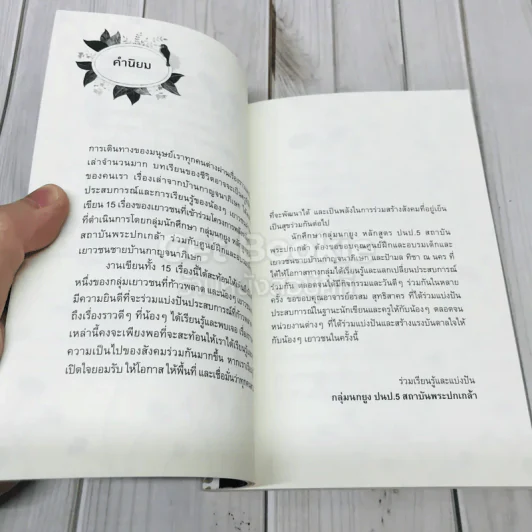 คำนิยม
การเดินทางของมนุษย์เราทุกคนต่างผ่านเรื่อง
เล่าจำนวนมาก บทเรียนของชีวิตอาจจะเป็น
ของคนเรา เรื่องเล่าจากบ้านกาญจนาภิเษก
ประสบการณ์และการเรียนรู้ของน้องๆ เยาว
เขียน 15 เรื่องของเยาวชนที่เข้าร่วมโครงการ
ที่ดำเนินการโดยกลุ่มนักศึกษากลุ่มนกยูง หลัก
สถาบันพระปกเกล้า ร่วมกับศูนย์ฝึกและ
เยาวชนชายบ้านกาญจนาภิเษก
งานเขียนทั้ง 15 เรื่องนี้ได้สะท้อนให้
หนึ่งของกลุ่มเยาวชนที่ก้าวพลาด และน้องๆ
มีความยินดีที่จะแบ่งปันประสบการณ์ที่ก้าว
ถึงเรื่องราวดีๆ ที่น้องๆ ได้เรียนรู้และพบเจอ เรื่อง
เหล่านี้คงจะเพียงพอที่จะสะท้อนให้เราได้เรียนรู้
ความเป็นไปของสังคมร่วมกันมากขึ้น หากเรา
เปิดใจยอมรับ ให้โอกาส ให้พื้นที่ และเชื่อมั่นว่าทุกคน
ที่จะพัฒนาได้ และเป็นพลังในการร่วมสร้างสังคมที่อยู่เย็น
เป็นสุขร่วมกันต่อไป
นักศึกษา กลุ่มนกยูง หลักสูตร ปนป.5 สถาบัน
พระปกเกล้า ต้องขอขอบคุณศูนย์ฝึกและอบรมเด็กและ
เยาวชนชายบ้านกาญจนาภิเษก และป้ามล ทิชา ณ นคร ที่
ได้ให้โอกาสทางกลุ่มได้เรียนรู้และแลกเปลี่ยนประสบการณ์
ร่วมกัน ได้ทำกิจกรรมและวันดีๆ ร่วมกันในหลาย
ครั้ง ขอขอบคุณอาจารย์อรสม สุทธิสาคร ที่ได้ร่วมแบ่งปัน
ประสบการณ์ในฐานะนักเขียนและครูให้กับน้องๆ ตลอดจน
หน่วยงานต่างๆ ที่ได้ร่วมแบ่งปันและสร้างแรงบันดาลใจให้
กับน้องๆ เยาวชนในครั้งนี้
ร่วมเรียนรู้และแบ่งปัน
กลุ่มนกยูง ปนป.5 สถาบันพระปกเกล้า